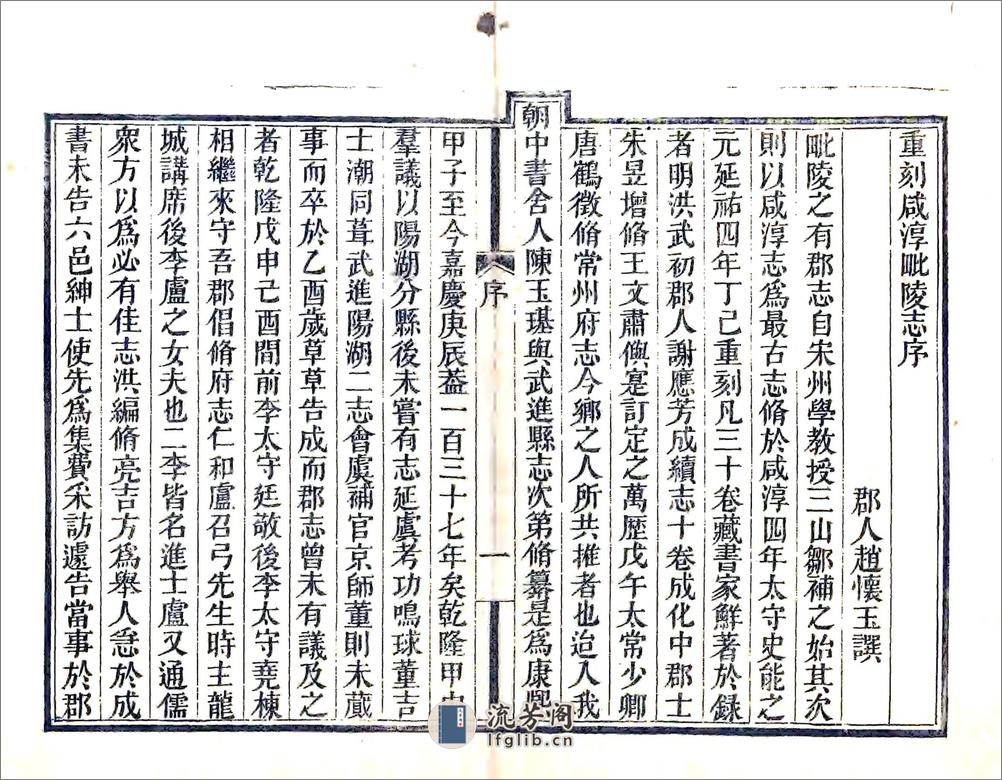 重刻咸淳毗陵志序
郡人趙懷玉譔
毗陵之有郡志自宋州學教授三山鄒補之始其次
則以咸淳志爲最古志脩於咸淳四年太守史能之
元延祐四年丁巳重刻凡三十卷藏書家鮮著於錄
者明洪武初郡人謝應芳成續志十卷成化中郡士
朱昱增脩王文肅㒜寔訂定之萬歷戊午太常少卿
唐鶴徵脩常州府志今鄉之人所共推者也迨入我
朝中書舍人陳玉璂與武進縣志次第脩纂是爲康熙
序
一
甲子至今嘉慶庚辰葢一百三十七年矣乾隆甲申
羣議以陽湖分縣後未嘗有志延虞考功鳴球董吉
士潮同葺武進陽湖二志會虞補官京師董則未蕆
事而卒於乙酉歲草草告成而郡志曾未有議及之
者乾隆戊申己酉間前李太守廷敬後李太守堯棟
相繼來守吾郡倡脩府志仁和盧召弓先生時主龍
城講席後李盧之女夫也二李皆名進士盧又通儒
衆方以爲必有佳志洪編脩亮吉方爲舉人急於成
書未告六邑紳士使先爲集費采訪遽告當事於郡
流芳阁
lfglib.cn